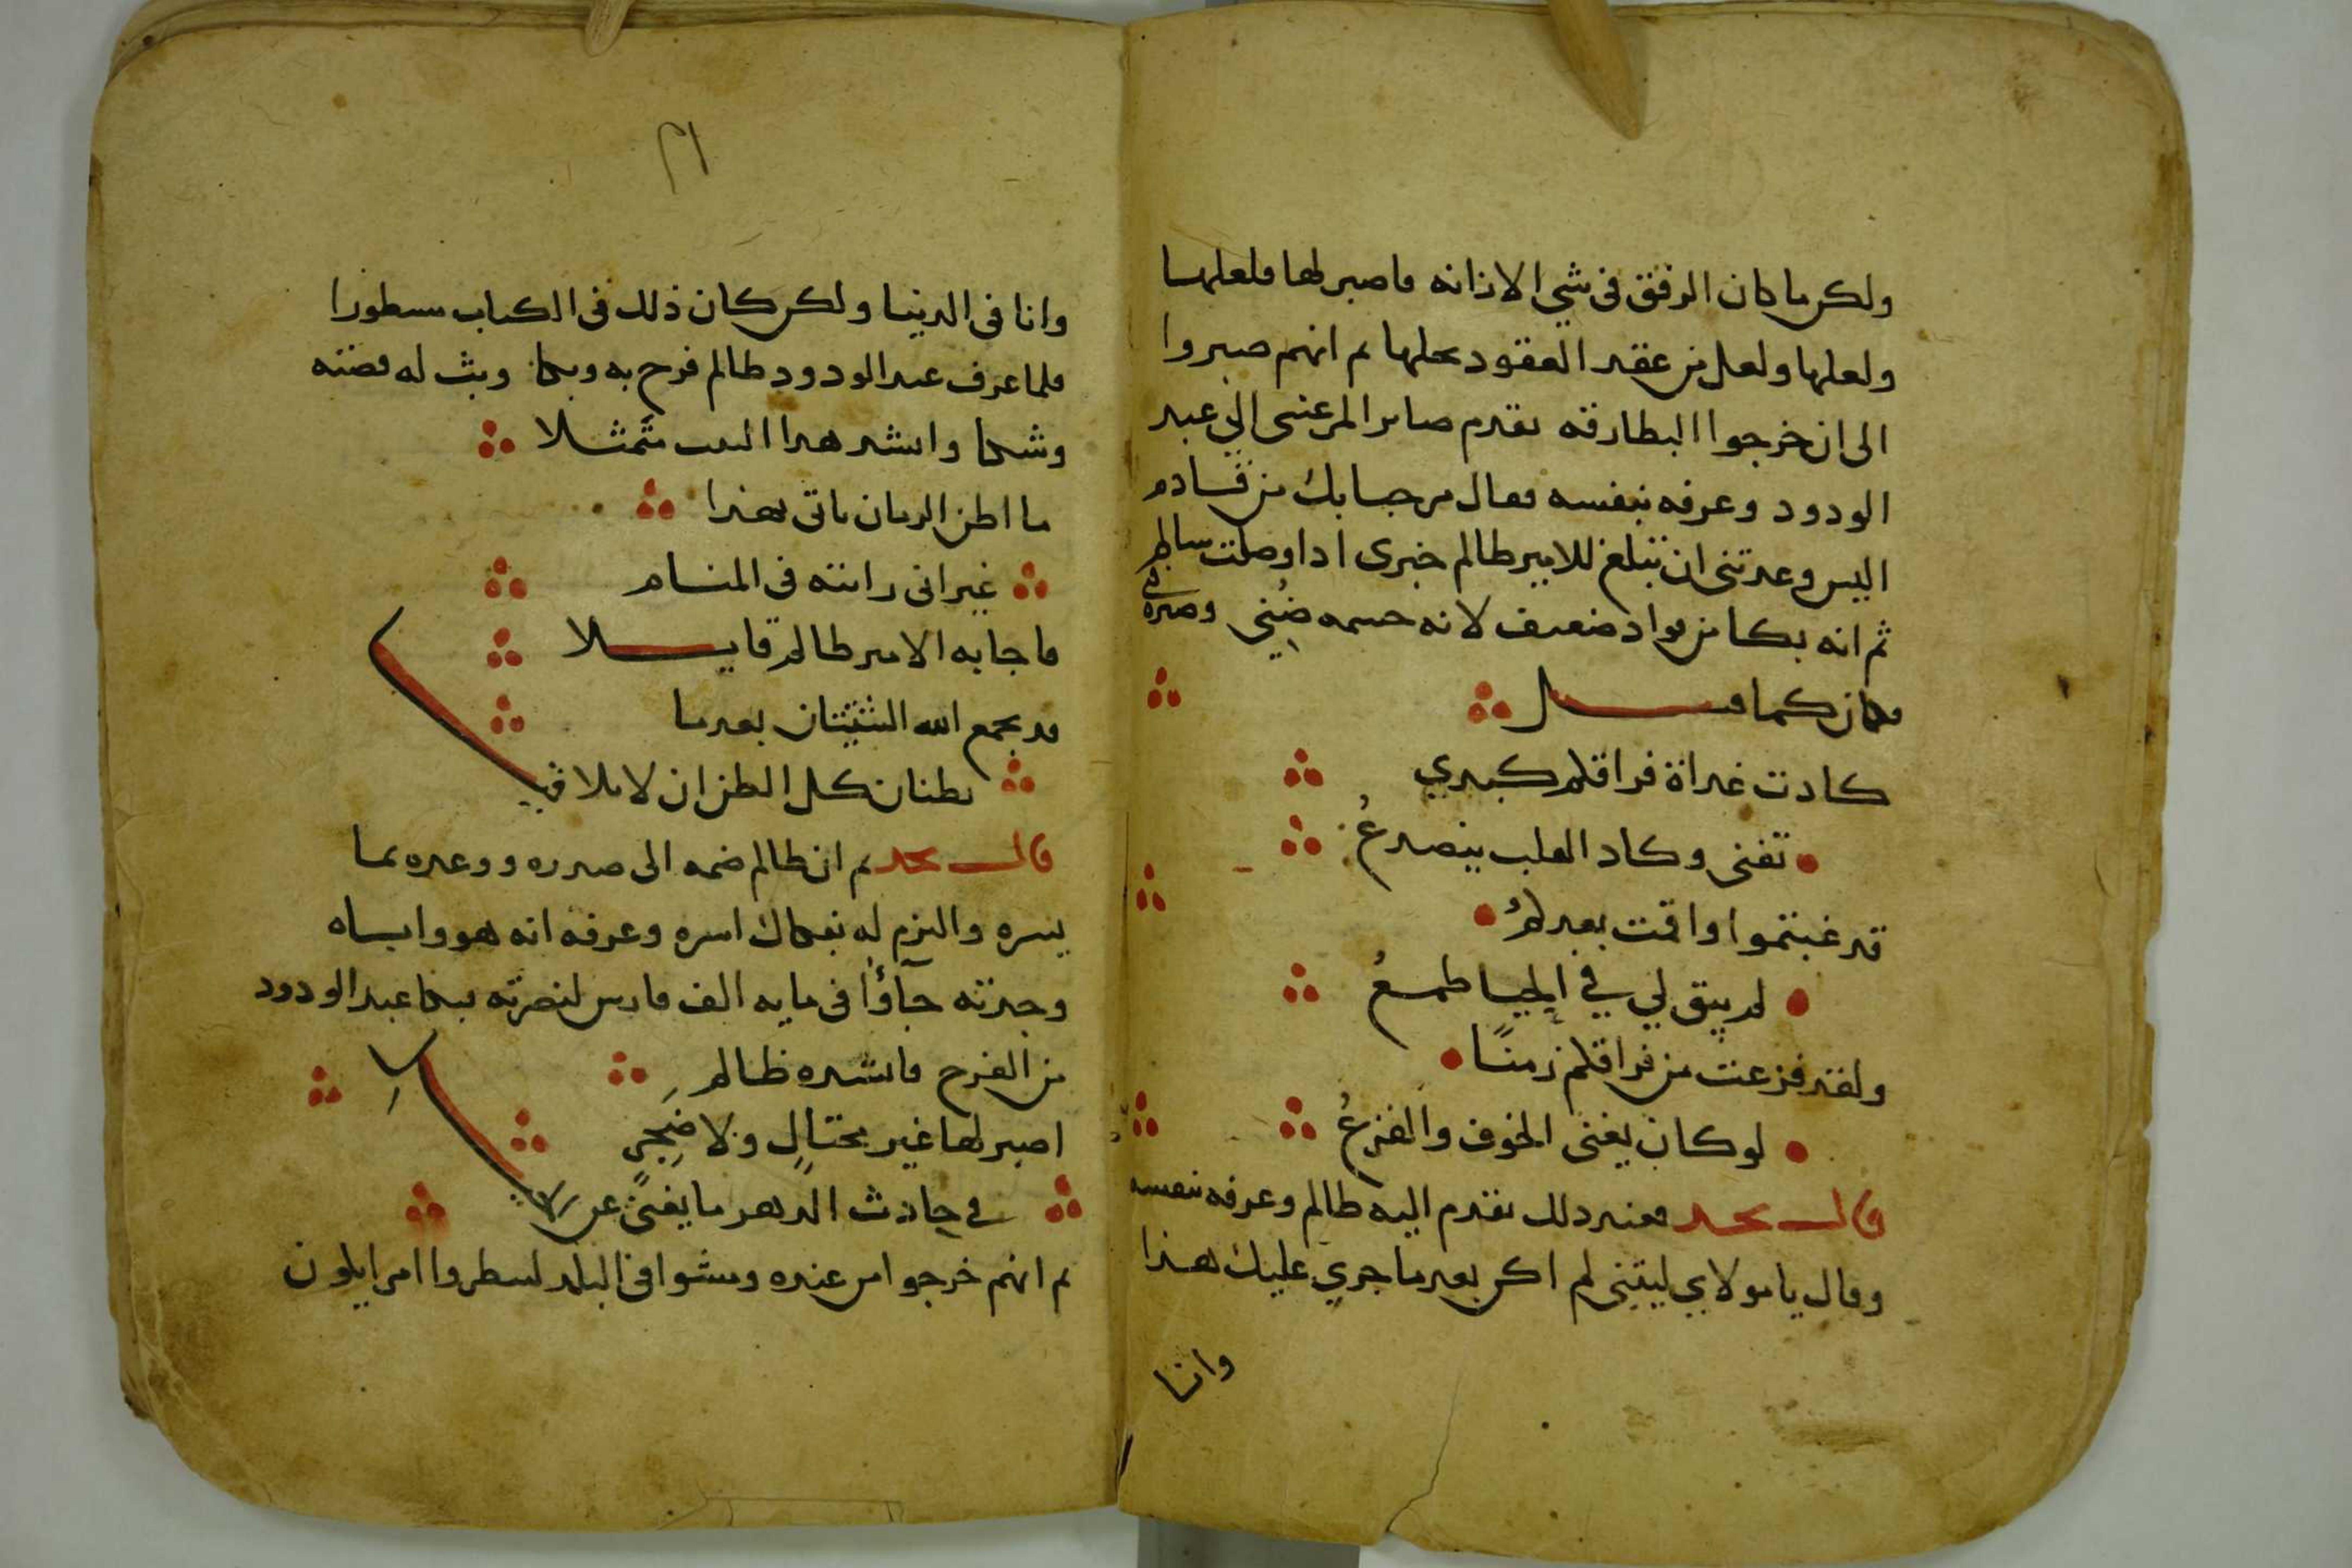 ولكن ما كان الرفق فى شي الا زانه فاصبر لها فلعلها
ولعلها ولعل من عقد العقود يحلها ثم انهم صبروا
الى ان خرجوا البطارقه تقدم صابر المرعشى الي عبد
الودود وعرفه بنفسه فقال مرحبا بك من قادم
اليس وعدتنى ان تبلغ للامير ظالم خبرى اذا وصلت سالم
ثم انه بكا من فواد ضعيف لانه جسمه ضني وصدره
فكان كما قال
كادت غداة فراقكم كبدي
تفنى وكاد القلب ينصدعُ
قد غبتموا واقمت بعدكمُ
لم يبق لي في الحيا طمعُ
ولقد فزعت من فراقكم زمنًا
لو كان يغنى الخوف والفزعُ
قال نجد فعند ذلك تقدم اليه ظالم وعرفه بنفسه
وقال يا مولاي ليتنى لم اكن بعد ما جري عليك هذا
وانا
٢١
وانا فى الدنيا ولكن كان ذلك فى الكتاب مسطورا
فلما عرف عبد الودود ظالم فرح به وبكا وبث له قصته
وشكا وانشد هدا البيت متمثلا
ما اظن الزمان ياتى بهذا
غير انى رايته فى المنام
فاجابه الامير ظالم قايلا
قد يجمع الله الشتيتان بعدما
يظنان كل الظن ان لا تلاقيا
قال نجد ثم ان ظالم ضمه الى صدره ووعده بما
يسره والتزم له بفكاك اسره وعرفه انه هو وابـاه
وجدته جآؤا فى مايه الف فارس لنصرته فبكا عبد الودود
من الفرح فانشده ظالم
اصبر لها غير محتالٍ ولا ضِجِر
في حادث الدهر ما يغنى عن
ثم انهم خرجوا من عنده ومشوا فى البلد لينظروا امرا يكون